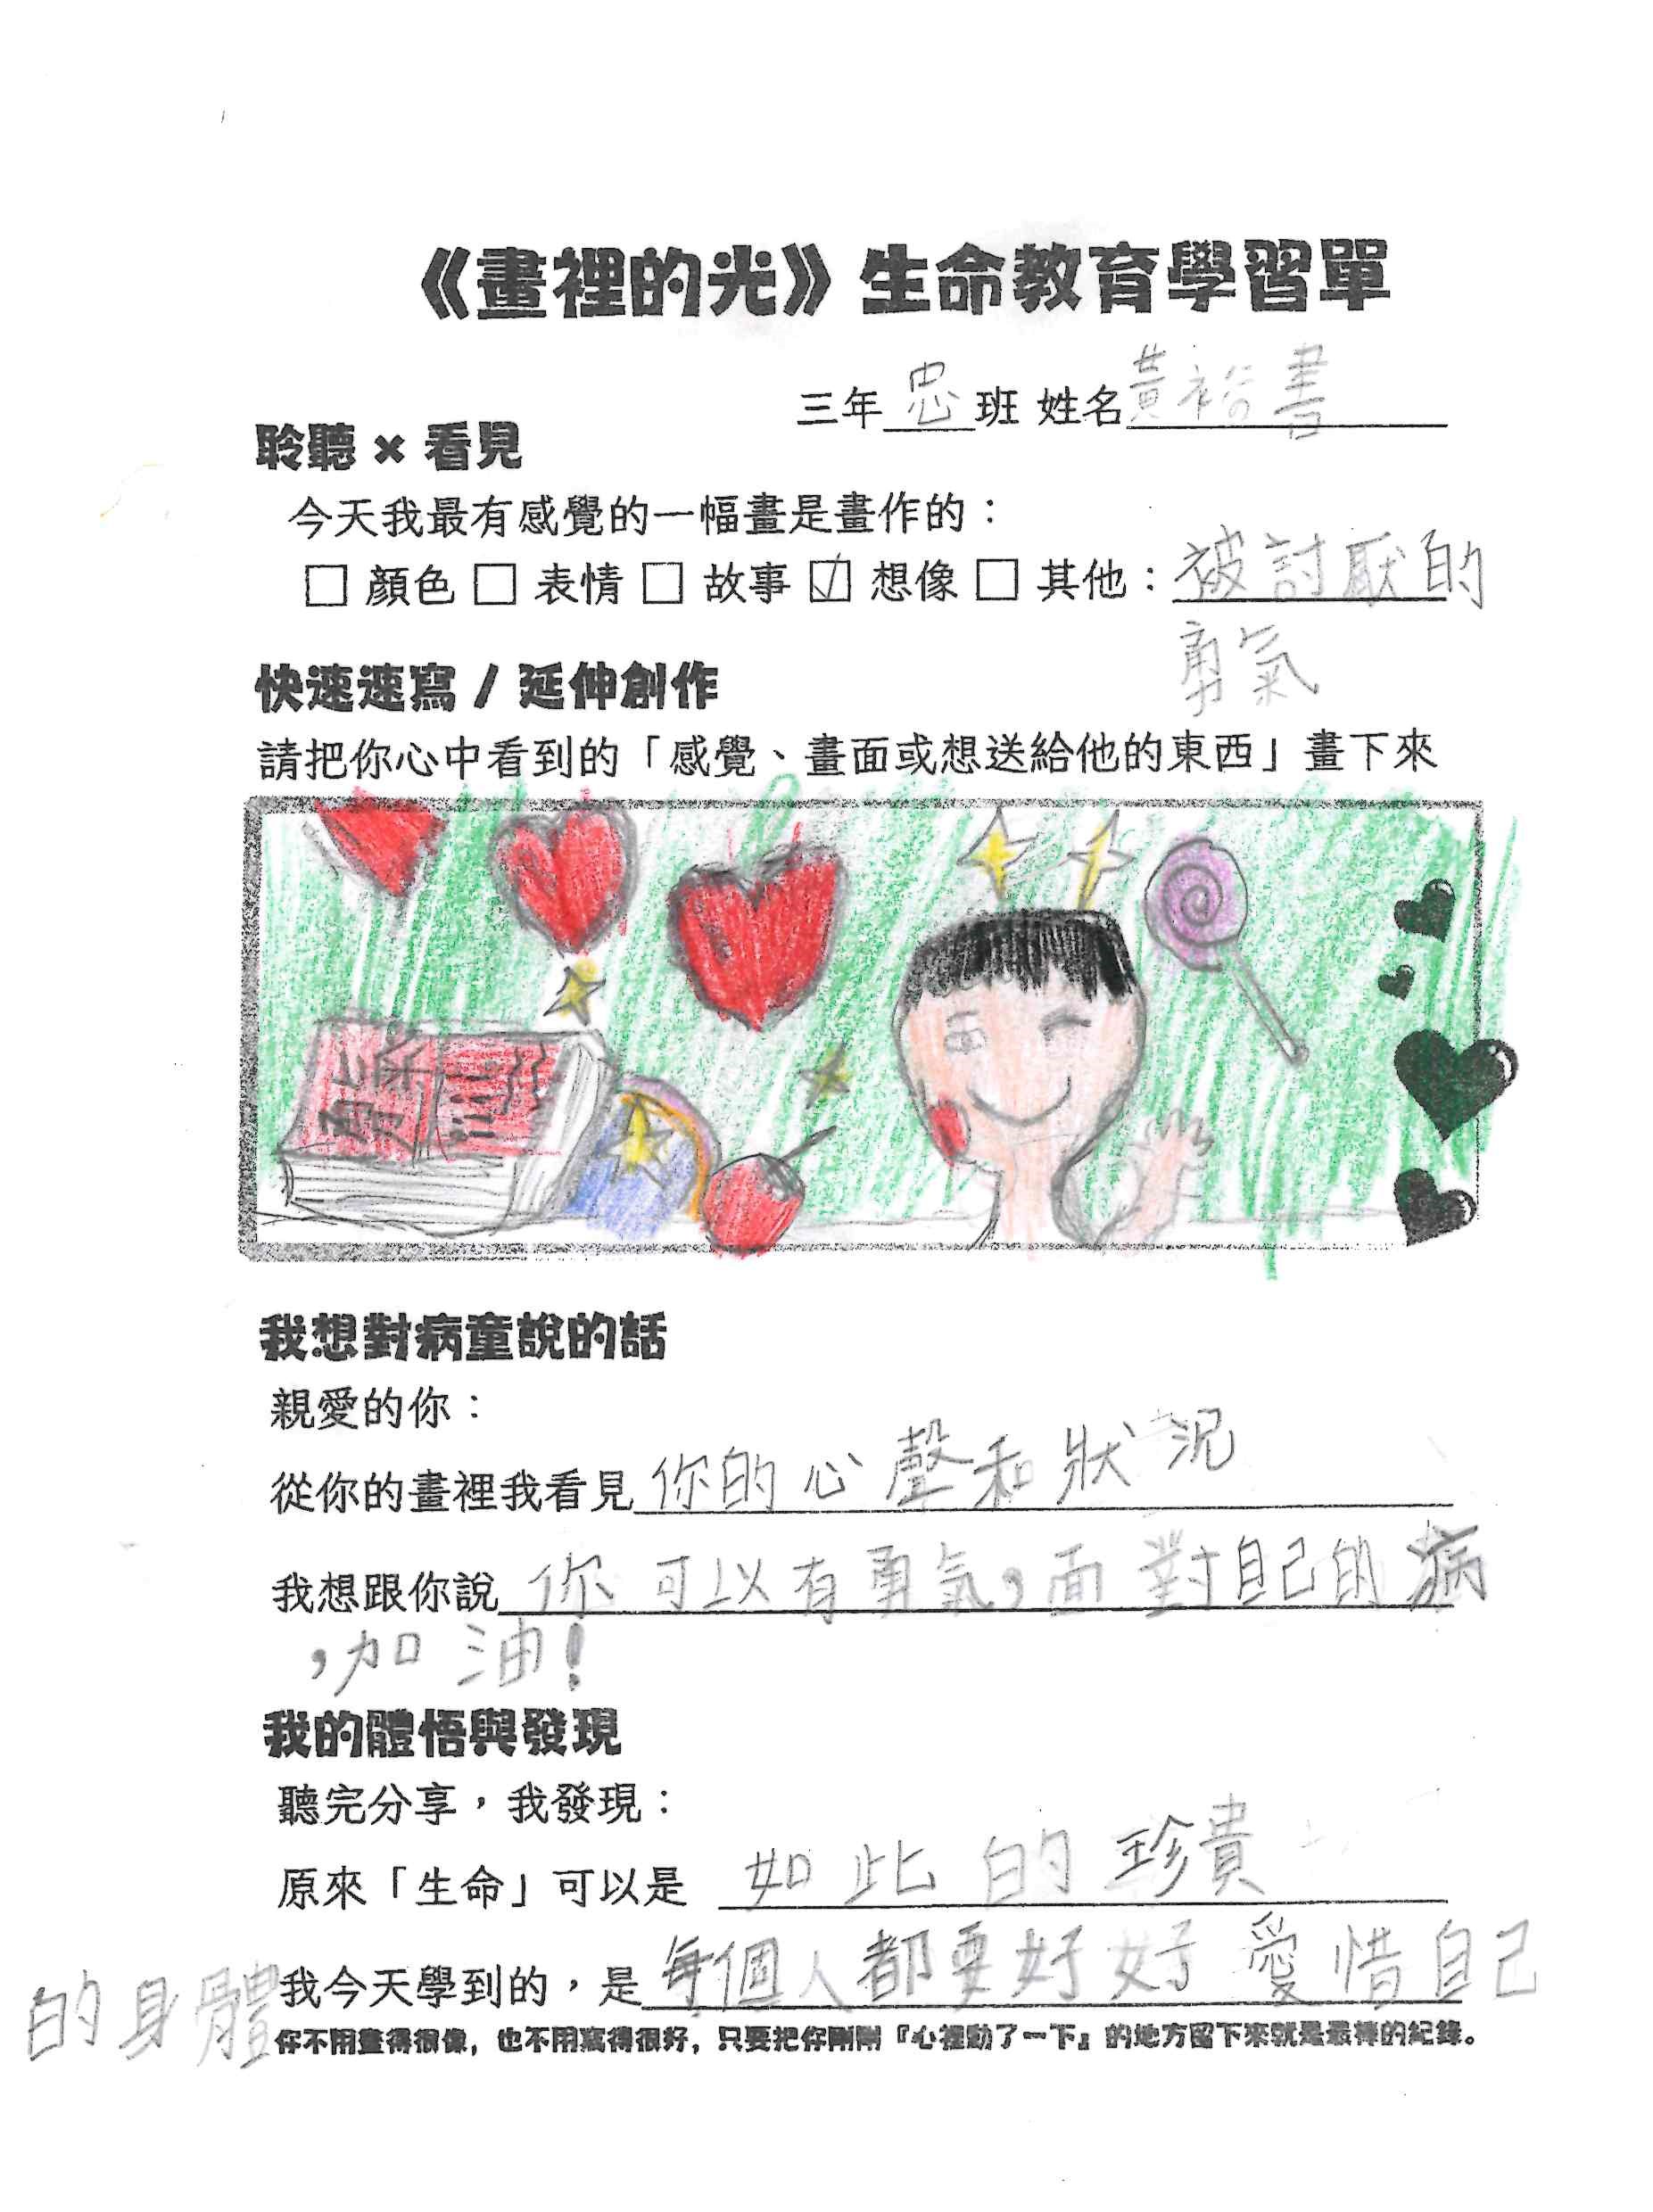 《畫裡的光》生命教育學習單
三年忠班 姓名黃裕書
聆聽 × 看見
今天我最有感覺的一幅畫是畫作的：
□ 顏色 □ 表情 □ 故事 ☑ 想像 □ 其他：被討厭的
勇氣
快速速寫 / 延伸創作
請把你心中看到的「感覺、畫面或想送給他的東西」畫下來
我想對病童說的話
親愛的你：
從你的畫裡我看見你的心聲和狀況
我想跟你說你可以有勇氣，面對自己的病
，加油！
我的體悟與發現
聽完分享，我發現：
原來「生命」可以是 如此的珍貴
我今天學到的，是每個人都要好好愛惜自己
的身體
你不用畫得很像，也不用寫得很好，只要把你剛剛『心裡動了一下』的地方留下來就是最棒的紀錄。